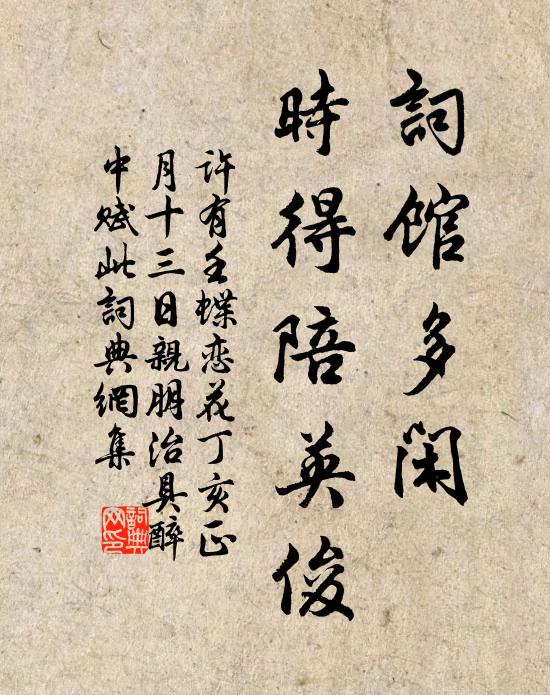 詞館多閑
時得陪英俊
許有壬蝶恋花丁亥正
月十三日親朋治具醉
中赋此詞典網集
詞典
网印